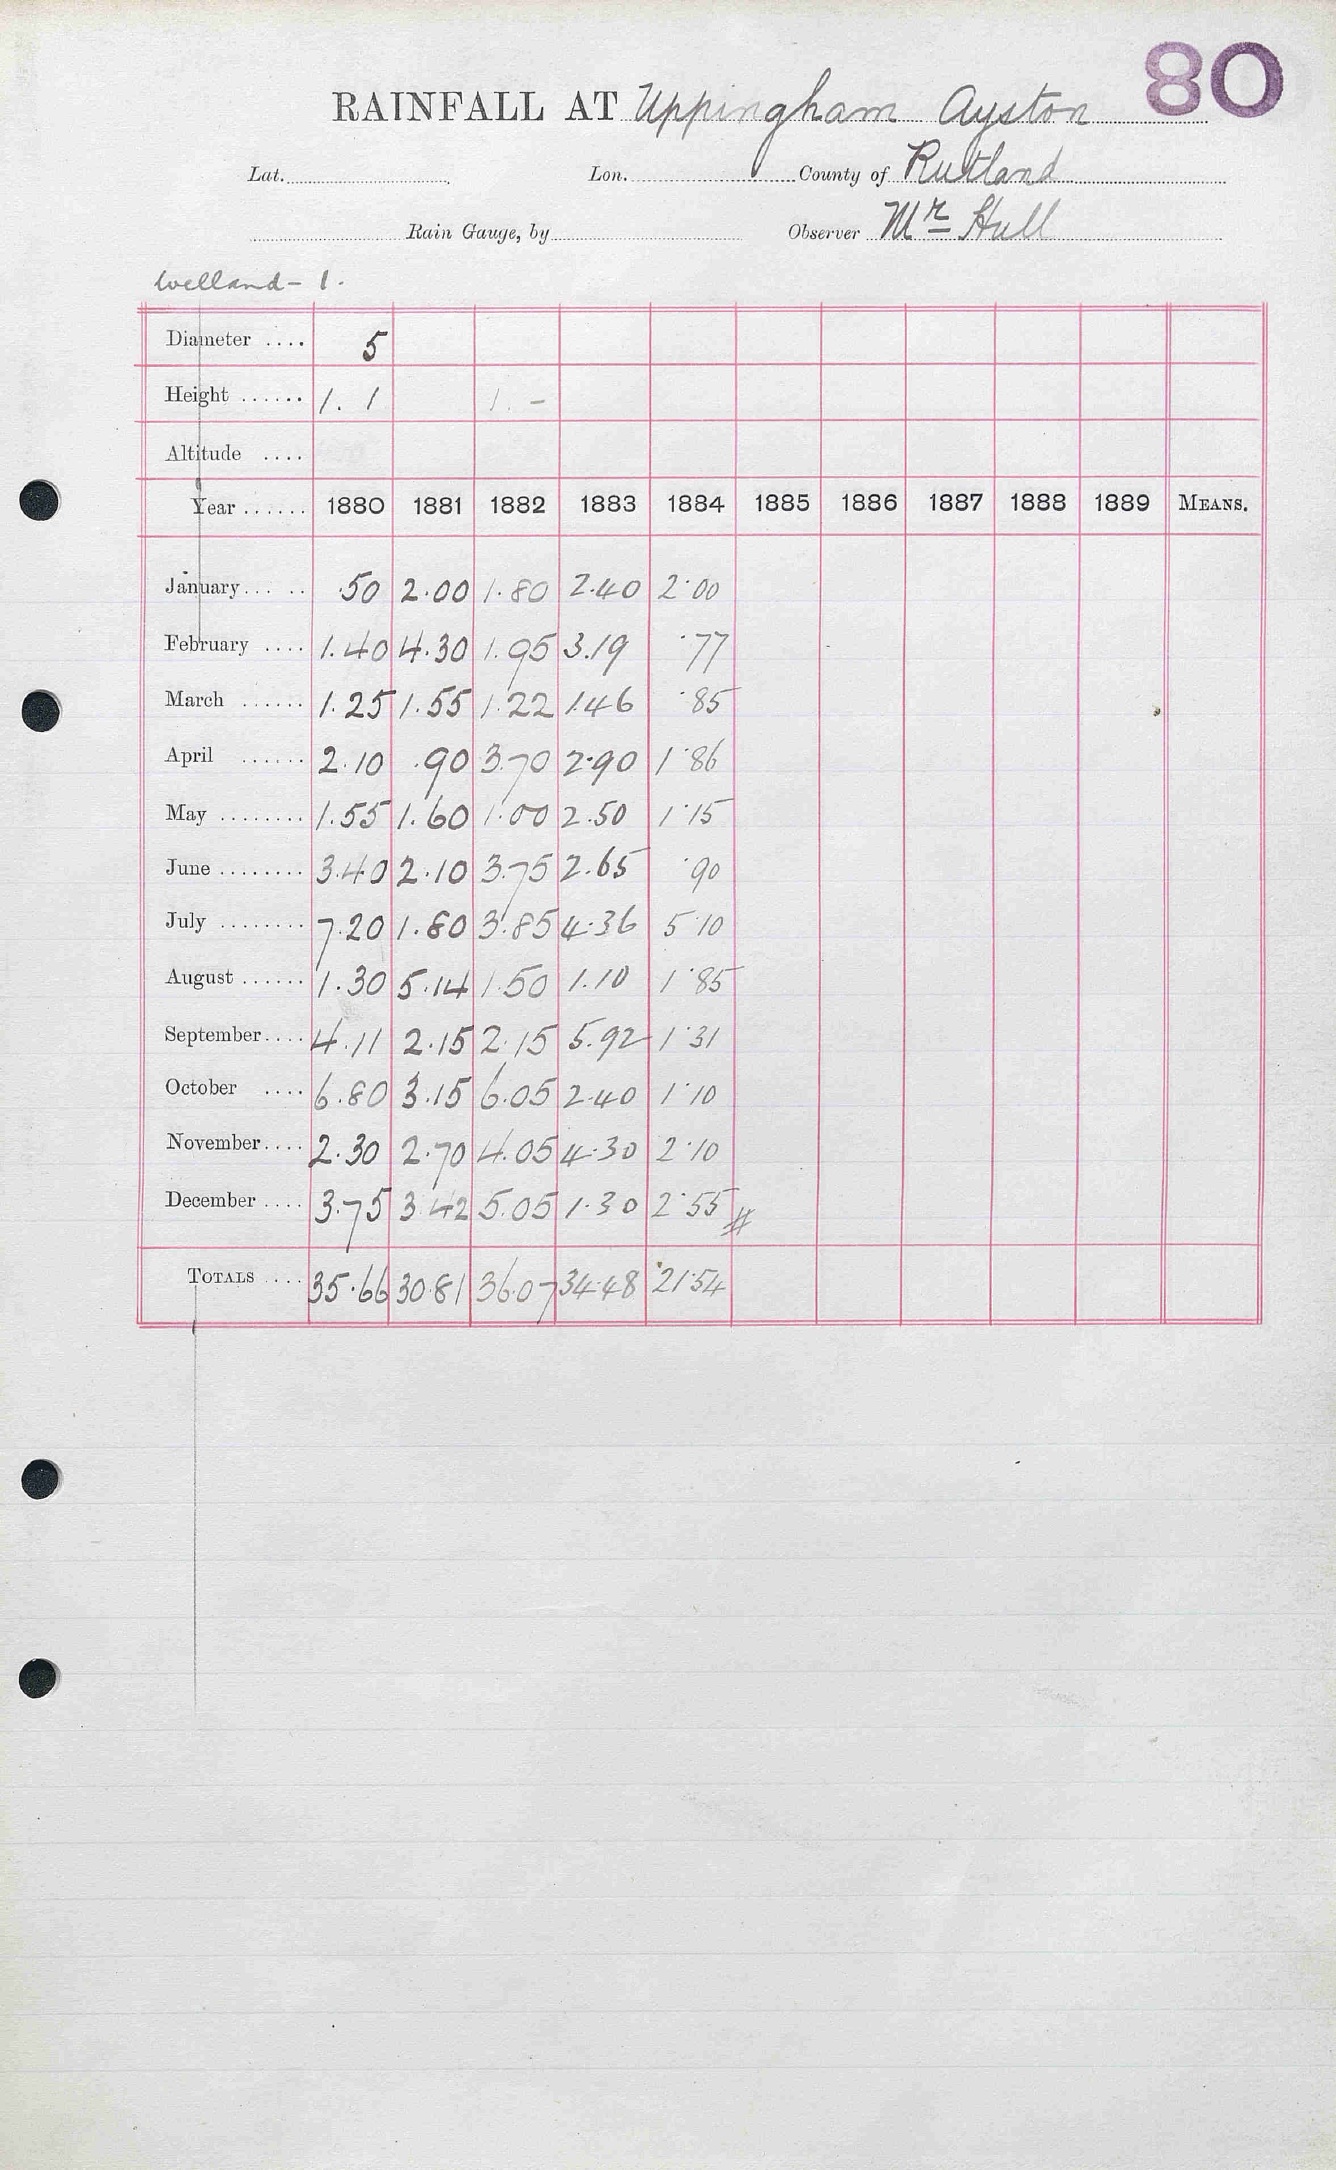 80
RAINFALL AT Uppingham Ayston
Lat. Lon. County of Rutland
Rain Gauge, by Observer Mr Hull
Welland - 1.
Diameter .... 5
Height ...... 1. 1 1. -
Altitude ....
Year ...... 1880 1881 1882 1883 1884 1885 1886 1887 1888 1889 MEANS.
January... .. .50 2.00 1.80 2.40 2.00
February .... 1.40 4.30 1.95 3.19 .77
March ...... 1.25 1.55 1.22 1.46 .85
April ...... 2.10 .90 3.70 2.90 1.86
May ........ 1.55 1.60 1.00 2.50 1.15
June ........ 3.40 2.10 3.75 2.65 .90
July ........ 7.20 1.80 3.85 4.36 5.10
August ...... 1.30 5.14 1.50 1.10 1.85
September.... 4.11 2.15 2.15 5.92 1.31
October .... 6.80 3.15 6.05 2.40 1.10
November.... 2.30 2.70 4.05 4.30 2.10
December .... 3.75 3.42 5.05 1.30 2.55 #
TOTALS .... 35.66 30.81 36.07 34.48 21.54